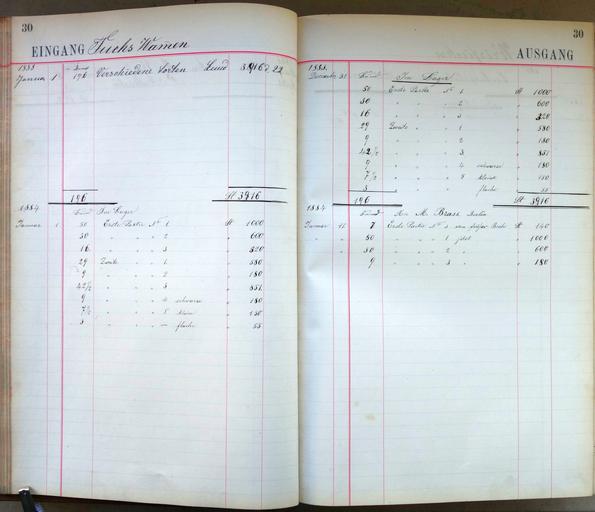 30
EINGANG Fuchs Wamen
1883
Januar 1 196 Verschiedene Sorten
196 M 3916
1884 Pfund Am Lager
Januar 1 50 Erste Sorte No 1 M 1000
50 " " " 2 " 600
16 " " " 3 " 320
29 Zweite " " 1 " 580
9 " " " 2 " 180
42 1/2 " " " 3 " 851
9 " " " 4 schwarze " 180
7 1/2 " " " 5 kleine " 150
3 " " " — flache " 55
30
AUSGANG
1883
Dezember 31 Pfund Am Lager
50 Erste Sorte No 1 M 1000
50 " " " 2 " 600
16 " " " 3 " 320
29 Zweite " " 1 " 580
9 " " " 2 " 180
42 1/2 " " " 3 " 851
9 " " " 4 schwarze " 180
7 1/2 " " " 5 kleine " 150
3 " " " flache " 55
196 M 3916
1884 Pfund An M. Brass Berlin
Januar 7 Erste Sorte No 1 M 140
50 " " " 1 " 1000
50 " " " 2 " 600
9 " " " 3 " 180